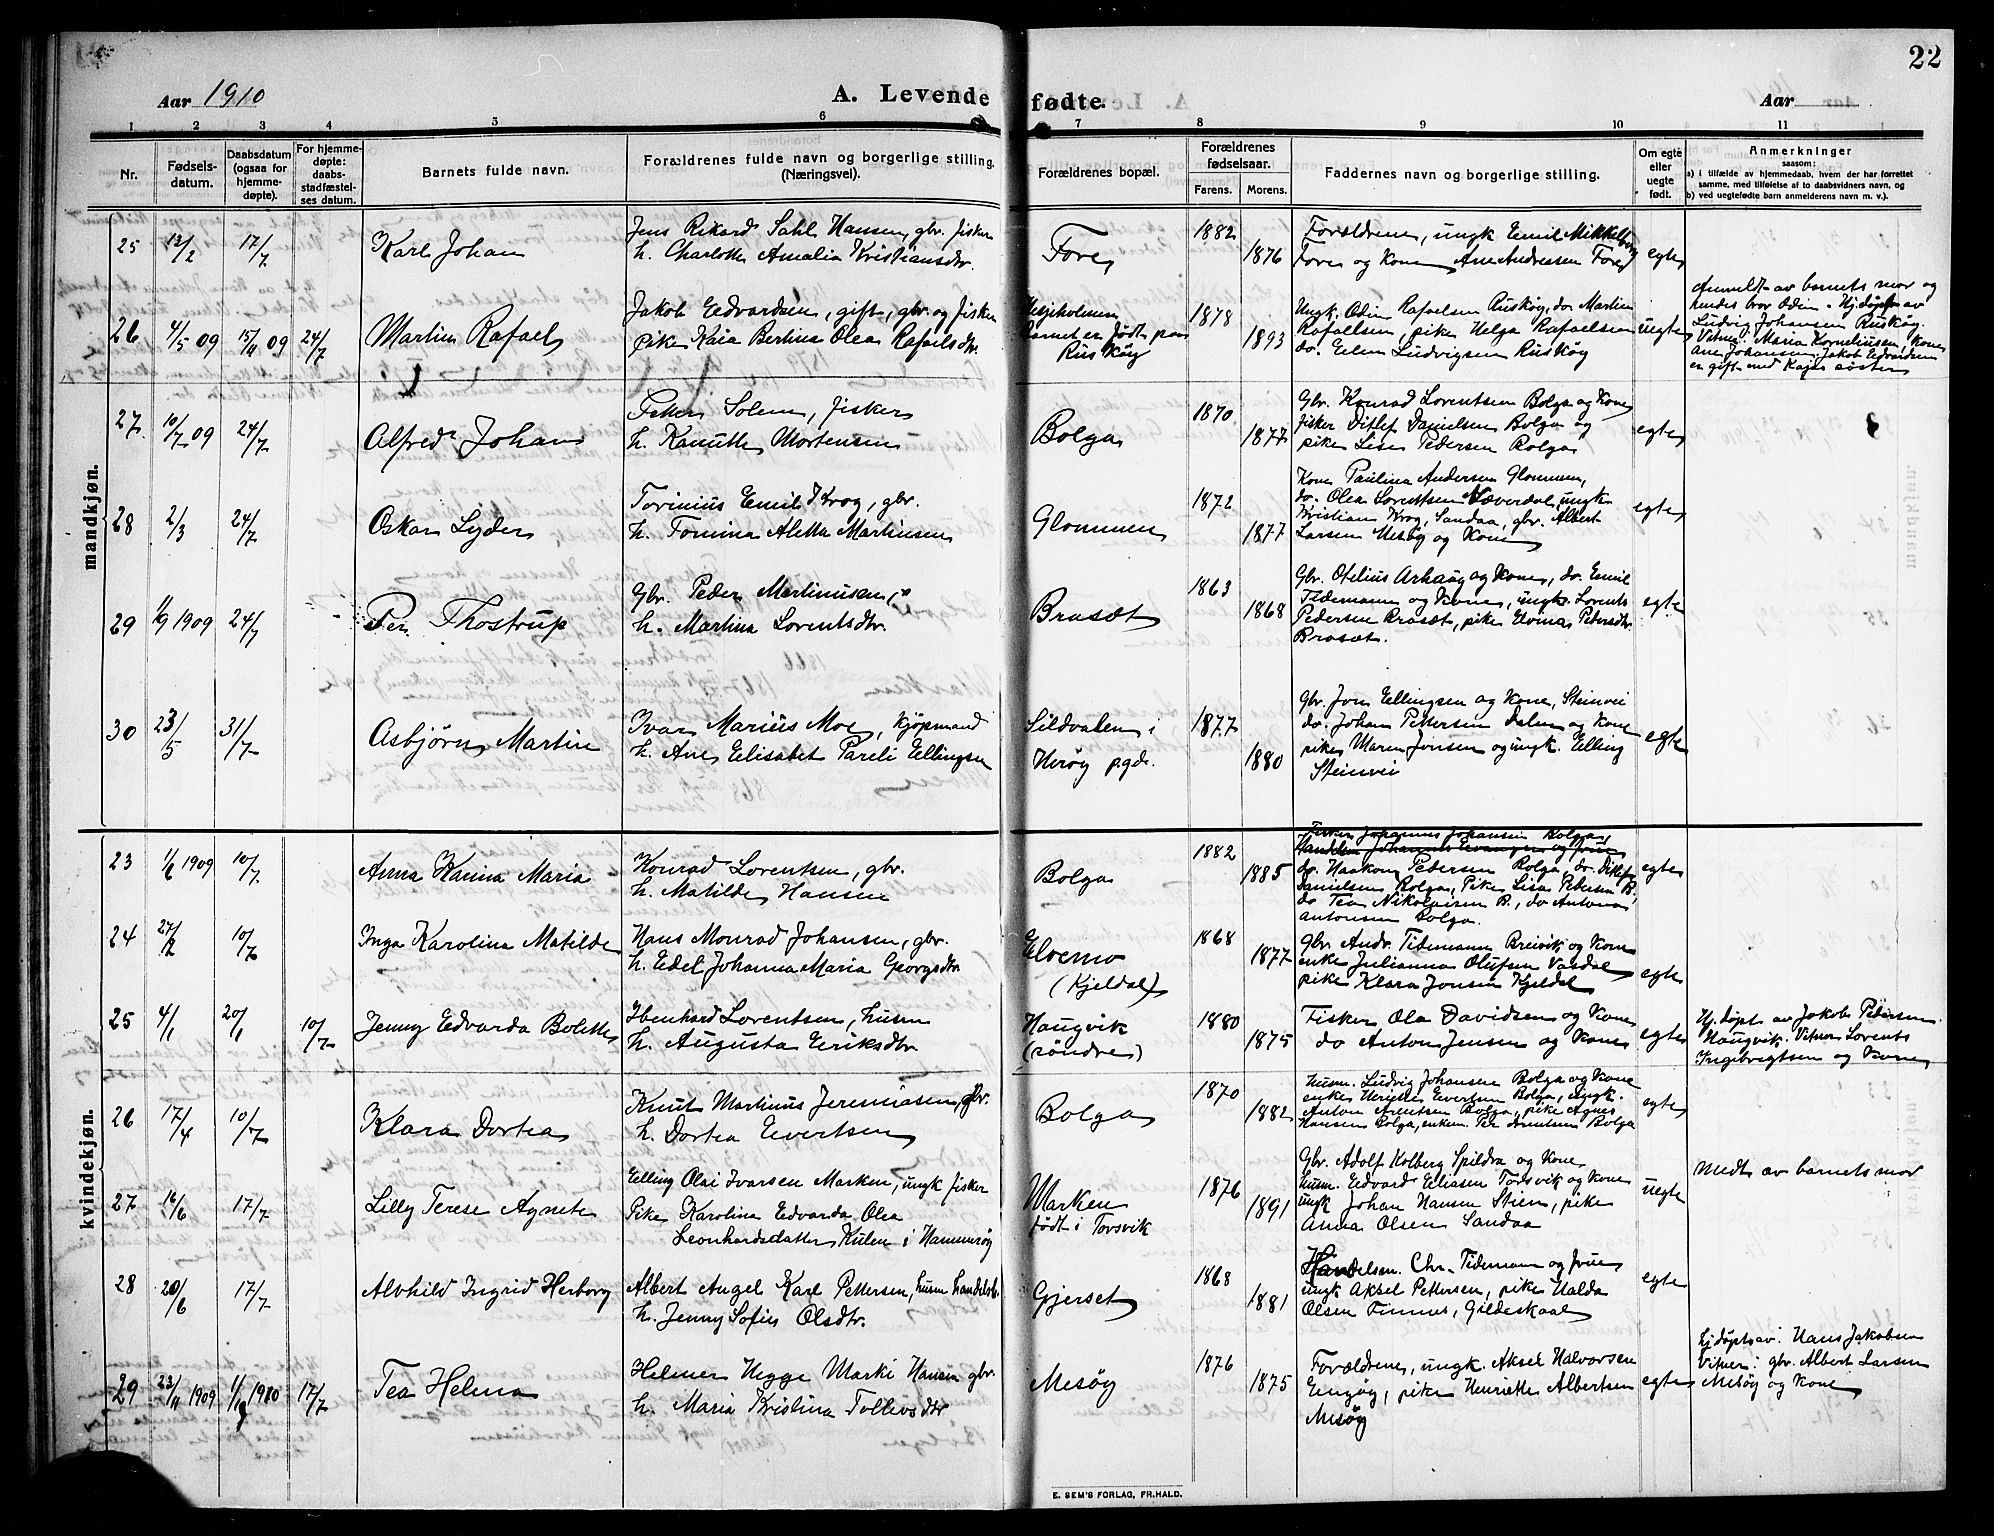 22
Aar 1910
A. Levende fødte.
Aar
1 2 3 4 5 6 7 8 9 10 11
Nr.
Fødsels-
datum.
Daabsdatum
(ogsaa for
hjemme-
døpte).
For hjemme-
døpte:
daabs-
stadfæstel-
ses datum.
Barnets fulde navn.
Forældrenes fulde navn og borgerlige stilling.
(Næringsvei).
Forældrenes bopæl.
Forældrenes
fødselsaar.
Farens. Morens.
Faddernes navn og borgerlige stilling.
Om egte
eller
uegte
født.
Anmerkninger
saasom:
a) i tilfælde av hjemmedaab, hvem der har forrettet
samme, med tilføielse af to daabsvidners navn, og
b) ved uegtefødte barn anmelderens navn m. v.).
mandkjøn.
25 12/2 17/7 Karl Johan
Jens Rikard Sahl Hansen, gbr. fisker
h. Charlotte Amalia Kristiansdtr.
Fore
1882 1876
Forældrene, ungk Emil Mikkelborg
Fore og Kone, Ane Andreasen Fore
egte
26 4/5 09 15/11 09 24/7 Martin Rafael
Jakob Edvardsen, gift, gbr. og fisker
pike Kaia Bertine Olea Rafaelsdtr.
barnet er født paa
Ruskøy
1878 1893
Ungk. Odin Rafaelsen Ruskøy, do Martin
Rafaelsen, pike Helga Rafaelsen
do. Elen Ludvigsen Ruskøy
uegte
Anmeldt av barnets mor og
hendes bror Odin. Hj.døpt av
Ludvig Johansen Ruskøy.
Vitne: Maria Korneliusen, kone
Ane Johansen. Jakob Edvardsen
er gift med Kajas søster
27. 10/7 09 24/7 Alfred Johan
Peter Solem, fisker
h. Kanutte Mortensen
Bolga
1870 1877
Gbr. Konrad Lorentsen Bolga og Kone
fisker Ditlef Danielsen Bolga og
pike Lise Pedersen Bolga
egte
28 2/3 24/7 Oskar Lyder
Torinius Emil Krog, gbr.
h. Tomina Aletta Martinsen
Glommen
1872 1877
Kone Paulina Andersen Glommen,
do. Olea Lorentsen Næverdal, ungk
Kristian Krog, Sandaa, gbr. Albert
Larsen Mesøy og Kone
egte
29 11/9 1909 24/7 Per Thostrup
Gbr. Peder Martinusen,
h. Martina Lorentsdtr.
Brasæt
1863 1868
Gbr. Otelius Arhaug og Kone, do. Emil
Tidemann og Kone, ungk. Lorents
Pedersen Brasæt, pike Elvina Pedersdtr.
Brasæt.
egte
30 23/5 31/7 Asbjørn Martin
Ivar Marius Moe, kjøpmand
h. Ane Elisabet Pareli Ellingsen
Sildvalen i
Herøy pgd.
1877 1880
Gbr. Jorn Ellingsen og Kone, Steinvei
do. Johan Pettersen Dalen og Kone
pike Maren Jonsen og ungk. Elling
Steinvei
egte
kvindekjøn.
23 1/6 1909 10/7. Anna Hanna Maria
Konrad Lorentsen, gbr.
h. Matilde Hansen
Bolga
1882 1885
Fisker Johannes Johansen Bolga,
do. Haakon Pedersen Bolga, do. Ditlef
Danielsen Bolga, Pike Lisa Pedersen B.,
do Tea Nikolaisen B., do Antona
Antonsen Bolga.
egte
24 27/2 10/7 Inga Karolina Matilde
Hans Monrad Johansen, gbr.
h. Edel Johanna Maria Georgsdtr
Elvemo
(Kjeldal)
1868 1877
Gbr. Andr. Tidemann Breivik og Kone
enke Julianna Olufsen Vasdal
pike Klara Jonsen Kjeldal
egte
25 4/1 20/1 10/7 Jenny Edvarda Bolette
Ibenhard Lorentsen, husm
h. Augusta Eriksdtr.
Haugvik
(søndre)
1880 1875
Fisker Ola Davidsen og Kone
do Anton Jensen og Kone
egte
Hj. døpt av Jakob Pedersen
Haugvik. Vitner Lorents
Ingebrigtsen og Kone
26 17/4 10/7 Klara Dortea
Knut Martinus Jeremiasen, gbr.
h. Dortea Evertsen
Bolga
1870 1882
Husm. Ludvig Johansen Bolga og Kone
enke Henrikke Evertsen Bolga, ungk.
Anton Arentsen Bolga, pike Agnes
Hansen Bolga, enkem. Per Arntsen Bolga
egte
27 16/6 17/7 Lilly Terese Agnete
Elling Olai Ivarsen Marken, ungk fisker
Pike Karolina Edvarda Olea
Leonhardsdatter Kulen i Hammerøy
Marken
født i Torsvik
1876 1891
Gbr. Adolf Kolberg Spildra og Kone
husm. Edvard Eliasen Torsvik og Kone
ungk Johan Hansen Stien, pike
Anna Olsen Sandaa
uegte
Medt av barnets mor
28 20/6 17/7 Alvhild Ingrid Herborg
Albert Angel Karl Pettersen, husm handelsb.
h. Jenny Sofie Olsdtr.
Gjerset
1868 1881
Handelsm. Chr. Tidemann og frue
ungk Aksel Pettersen, pike Halda
Olsen Finnes, Gildeskaal
egte
29 23/11 1909 1/1 1910 17/7 Tea Helena
Helmer Hegge Marki Hansen gbr.
h. Maria Kristina Tollevsdtr
Mesøy
1876 1875
Forældrene, ungk. Aksel Halvorsen
Engøy, pike Henriette Albertsen
Mesøy
egte
Hj døpt av: Hans Jakobsen
Vitner: gbr. Albert Larsen
Mesøy og Kone
E. SEM'S FORLAG, FR.HALD.